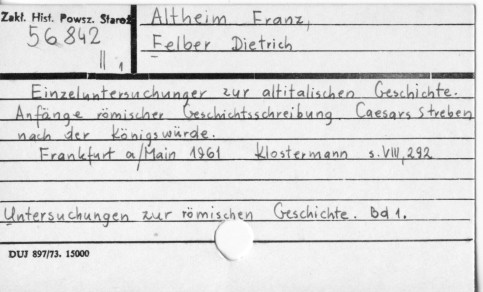 Zakł. Hist. Powsz. Staroż
Altheim Franz,
56842
Felber Dietrich
II 1
Einzeluntersuchunger zur altitalischen Geschichte.
Anfänge römischer Geschichtsschreibung. Caesars Streben
nach der Königswürde.
Frankfurt a/Main 1961 Klostermann s. VIII, 292
Untersuchungen zur römischen Geschichte. Bd 1.
DUJ 897/73. 15000